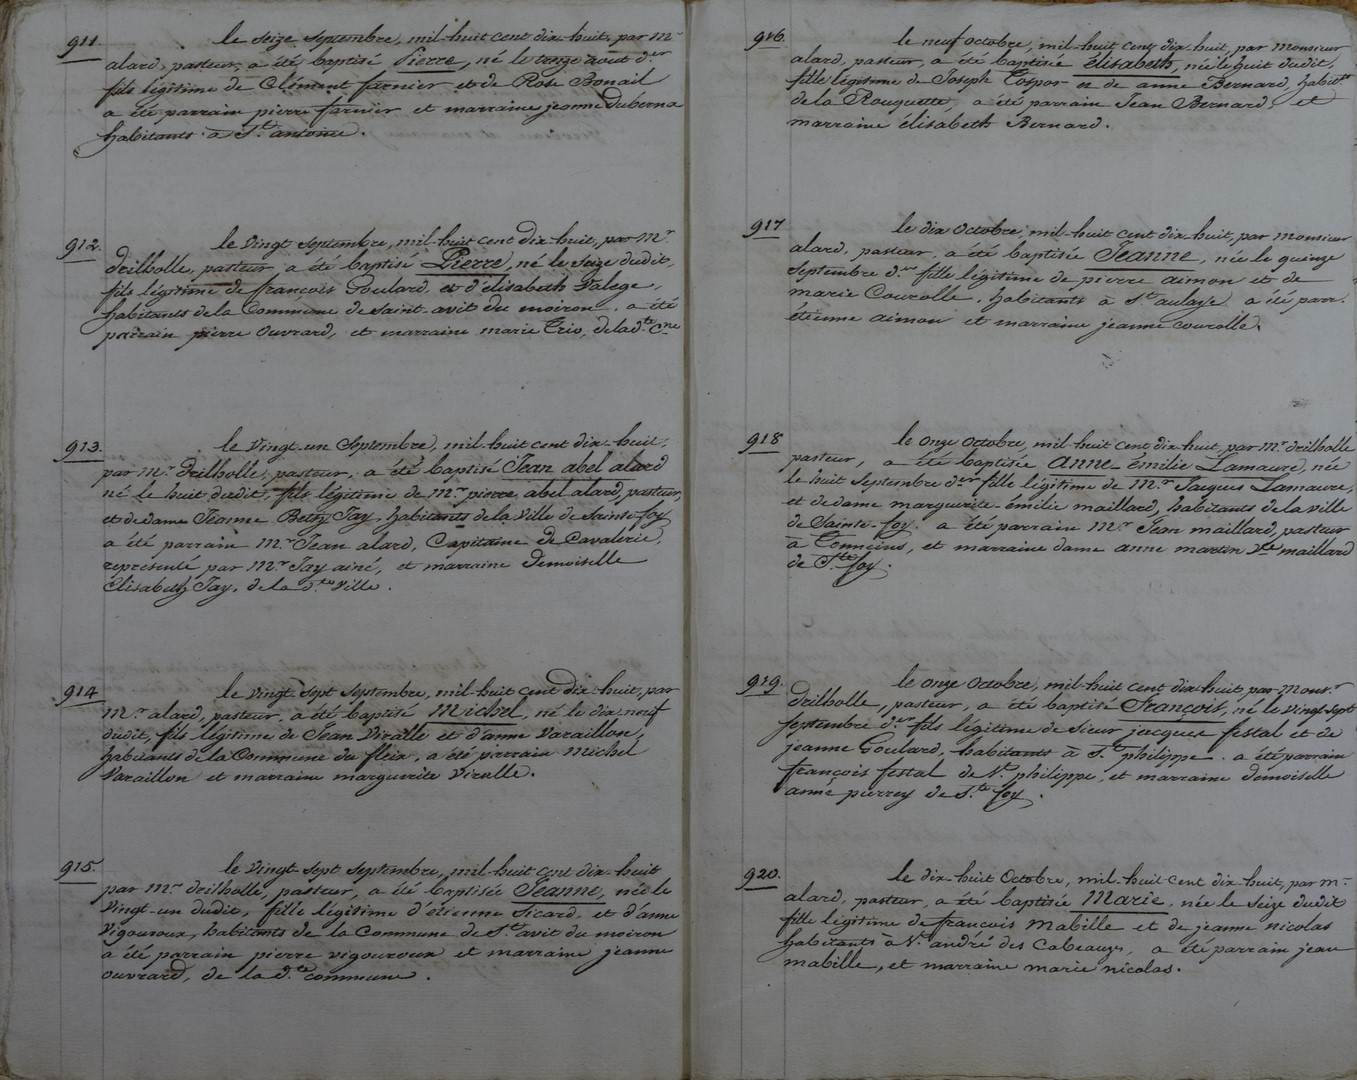 911.
le seize Septembre, mil-huit cent dix-huit, par mr
alard, pasteur, a été baptisé Pierre, né le onze aout der
fils légitime de Clément farnier et de Rose Bonail
a été parrain pierre farnier et marraine jeanne Duberna
habitants à St. antoine.
912.
le Vingt Septembre, mil-huit cent dix-huit, par Mr.
Drilholle, pasteur, a été baptisé Pierre, né le Seize dudit,
fils légitime de françois Goulard et d'élisabeth Valege,
habitants de la Commune de Saint-avit du moiron. a été
parrain pierre Ouvrard, et marraine marie Trio, de la dte Cne
913.
le Vingt-un Septembre, mil-huit cent dix-huit,
par Mr. Drilholle, pasteur, a été baptisé Jean abel alard
né le huit dudit, fils légitime de Mr. pierre abel alard, pasteur,
et de dame Jeanne Betzy Jay, habitants de la Ville de Sainte-foy
a été parrain Mr Jean alard, Capitaine de Cavalerie,
représenté par Mr Jay ainé, et marraine Demoiselle
Elisabeth Jay, de la dte Ville.
914
le Vingt-Sept Septembre, mil-huit cent dix-huit, par
Mr alard, pasteur, a été baptisé Michel, né le dix neuf
dudit, fils légitime de Jean Viralle et d'anne Varaillon,
habitants de la Commune du fleix, a été parrain Michel
Varaillon et marraine marguerite Viralle.
915.
le Vingt-Sept Septembre, mil-huit cent dix-huit
par Mr Drilholle, pasteur, a été baptisée Jeanne, née le
Vingt-un dudit, fille légitime d'étienne Sicard, et d'anne
Vigouroux, habitants de la Commune de St avit du moiron
a été parrain pierre vigouroux et marraine jeanne
ouvrard, de la dte commune.
916
le neuf Octobre, mil-huit cent dix huit, par Monsieur
alard, pasteur, a été baptisée élisabeth, née le huit dudit,
fille légitime de Joseph Cospor et de anne Bernard, habitts
de la Rouquette, a été parrain Jean Bernard, et
marraine élisabeth Bernard.
917
le dix Octobre, mil-huit cent dix-huit, par Monsieur
alard, pasteur, a été baptisée Jeanne, née le quinze
Septembre der fille légitime de pierre aimon et de
marie Courolle, habitants à St aulaye a été parr.
étienne aimon et marraine jeanne courolle.
918
le Onze Octobre, mil-huit cent dix-huit, par Mr drilholle
pasteur, a été baptisée Anne-émilie Lamaure, née
le huit Septembre der fille légitime de Mr Jacques Lamaure,
et de dame marguerite-émilie maillard, habitants de la ville
de Sainte-foy. a été parrain Mr Jean maillard, pasteur
à Tonneins, et marraine dame anne martin Vve maillard
de Ste foy.
919.
le Onze Octobre, mil-huit cent dix huit par Monsr
Drilholle, pasteur, a été baptisé François, né le Vingt-Sept
Septembre der fils légitime de Sieur jacques festal et de
jeanne Goulard, habitants à St philippe. a été parrain
françois festal de St philippe, et marraine demoiselle
anne pierrey de Ste foy.
920.
le dix-huit Octobre, mil-huit-cent dix-huit, par mr
alard, pasteur, a été baptisée Marie, née le Seize dudit
fille légitime de françois Mabille et de jeanne nicolas
habitants à St andré des Cabeauzes, a été parrain jean
mabille, et marraine marie nicolas.